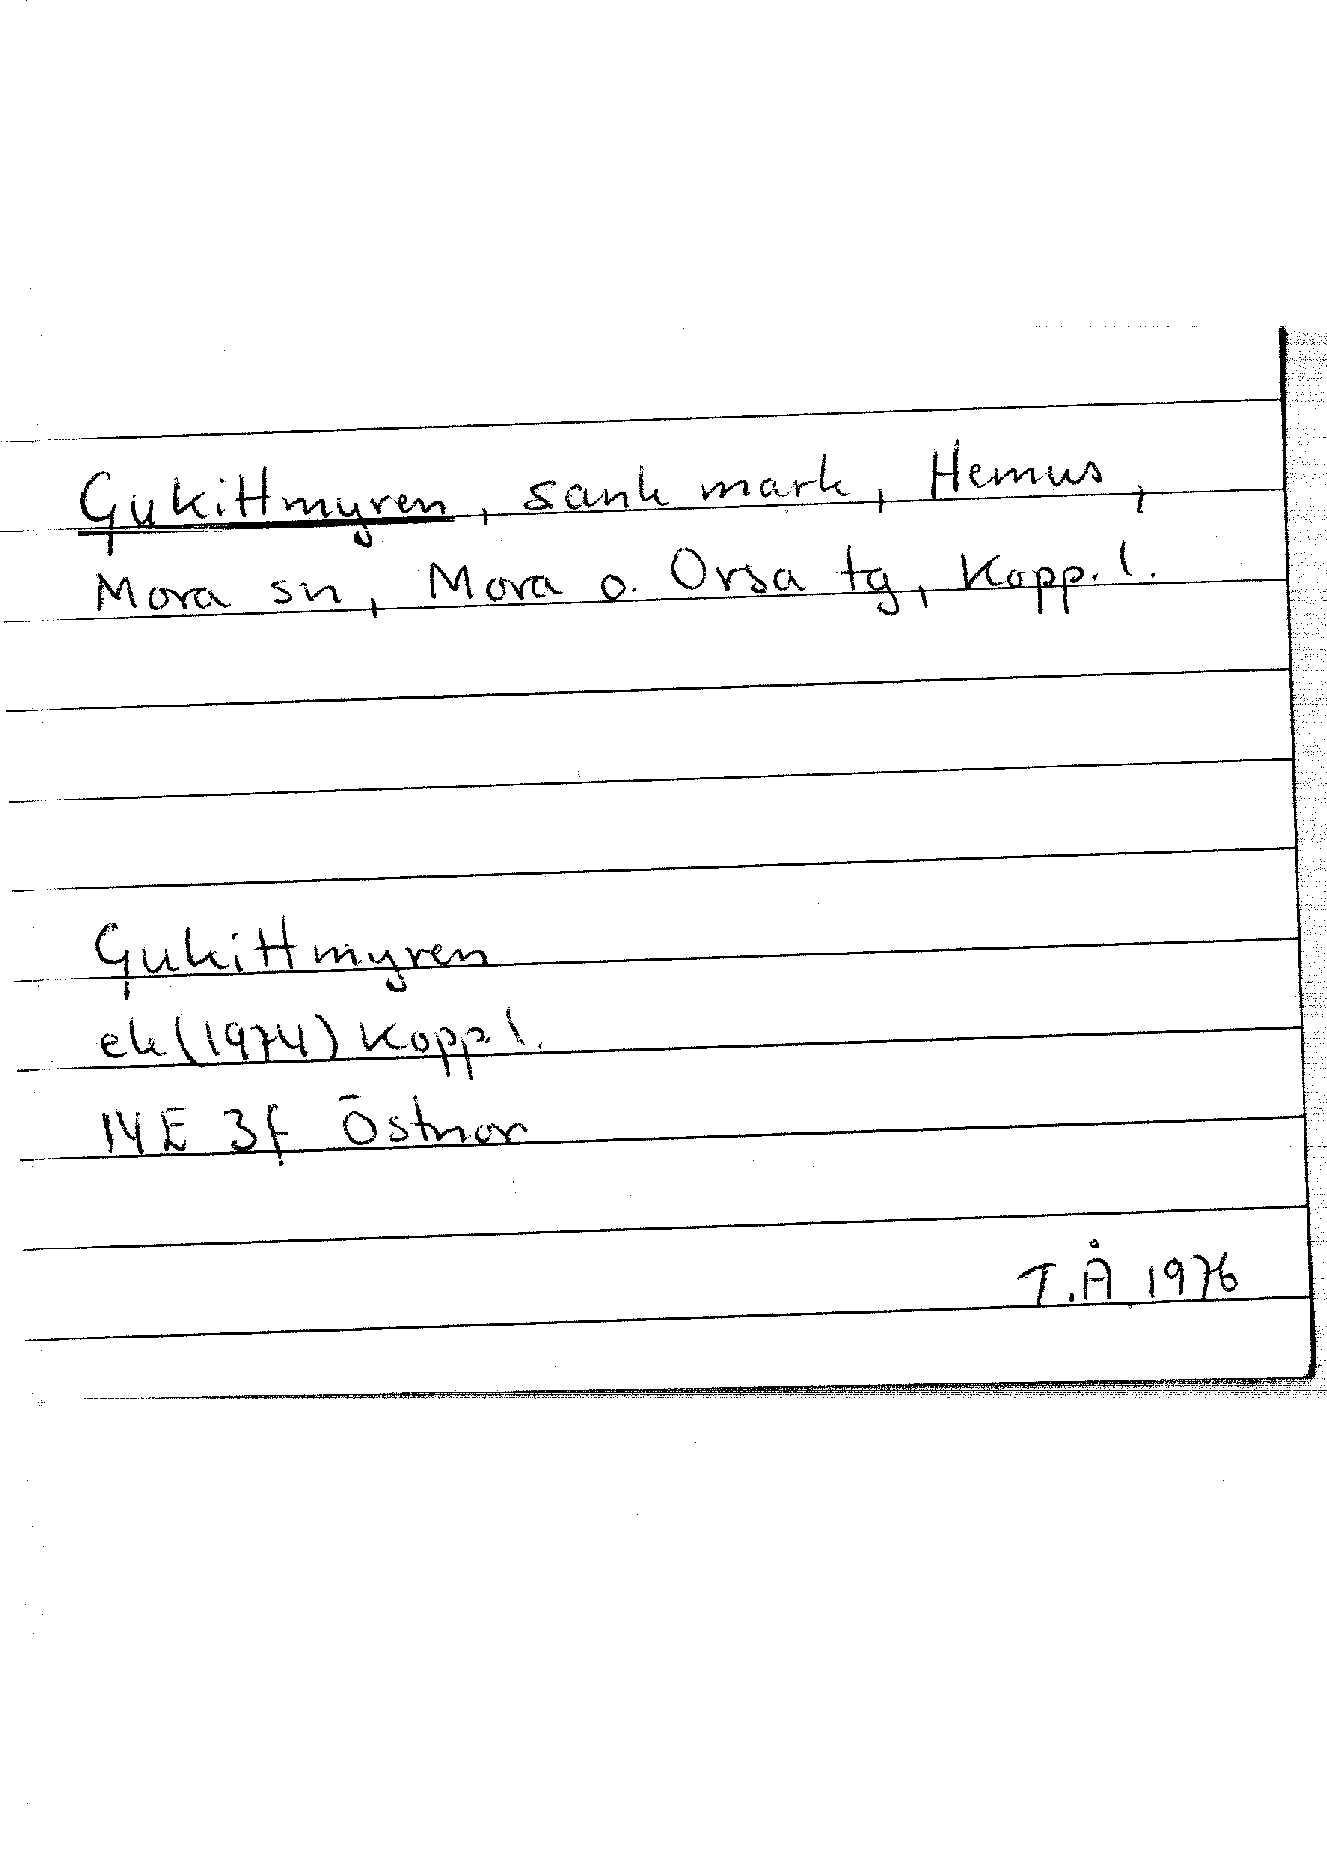 Gukittmyren, sank mark, Hemus,
Mora sn, Mora o. Orsa tg, Kopp. l.
Gukittmyren
ek (1974) Kopp. l.
14E 3f Östnor
T.Å 1976